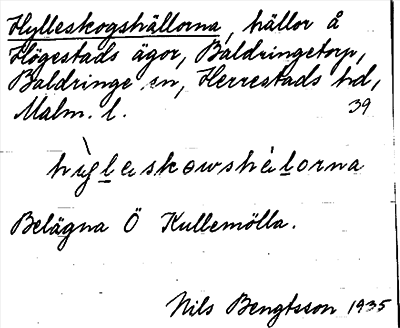 Hylleskogshällorna, hällor å
Högestads ägor, Baldringetorp,
Baldringe sn, Herrestads hd,
Malm. l. 39
Belägna Ö Kullemölla.
Nils Bengtsson 1935